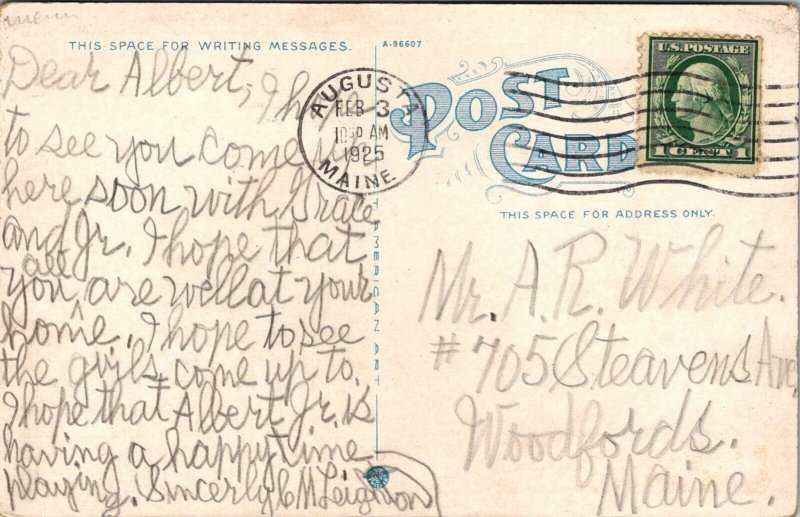 THIS SPACE FOR WRITING MESSAGES.
Dear Albert, I hope
to see you come up
here soon with Grace
and Jr. I hope that
all
you are well at your
home. I hope to see
the guyls come up to.
I hope that Albert Jr. is
having a happy time
playing. Sincerly C M Leighton
A-96607
POST
CARD
AUGUSTA
FEB 3
AM
1925
MAINE
U.S. POSTAGE
1 CENT 1
THIS SPACE FOR ADDRESS ONLY.
Mr. A. R. White.
# 705 Steavens Ave
Woodfords.
Maine.
AMERICAN ART